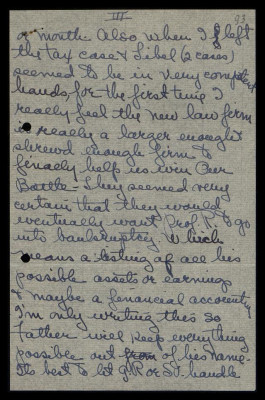 III
93
a month. Also when I left
the tax case & Libel (2 cases)
seemed to be in very competent
hands, for the first time I
really feel the new law firm
is really a larger enough &
shrewd enough firm to
finally help us win Our
Battle - They seemed very
certain that they would
eventually want Prof. P. to go
into bankruptcy. Which
means a listing of all his
possible assets or earning
& maybe a financial accounting
I'm only writing this so
Father will keep everything
possible out from of his name.
Its best to let G.P. or St. handle